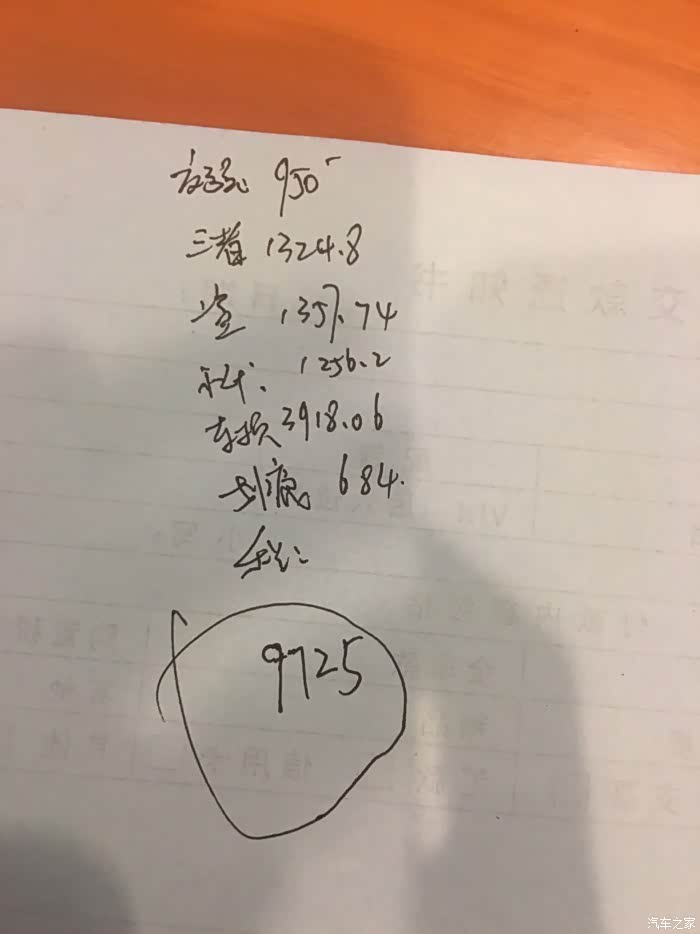 交强 950
三者 1324.8
盗 1357.74
1256.2
车损 3918.06
划痕 684.
9725
汽车之家